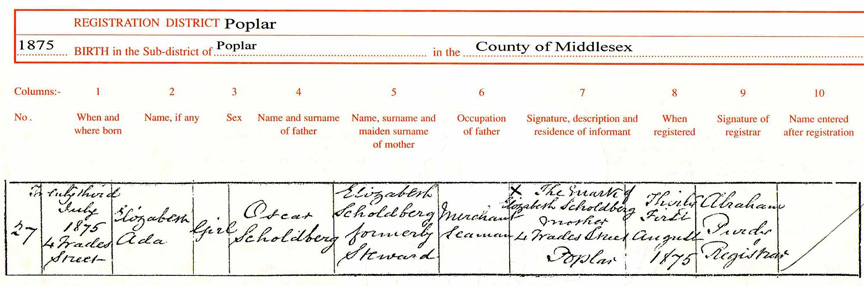 REGISTRATION DISTRICT Poplar
1875 BIRTH in the Sub-district of Poplar in the County of Middlesex
Columns:- 1 2 3 4 5 6 7 8 9 10
No. When and where born Name, if any Sex Name and surname of father Name, surname and maiden surname of mother Occupation of father Signature, description and residence of informant When registered Signature of registrar Name entered after registration
27
Twenty third
July
1875
4 Trades
Street
Elizabeth
Ada
Girl
Oscar
Scholdberg
Elizabeth
Scholdberg
formerly
Steward
Merchant
Seaman
X The mark of
Elizabeth Scholdberg
mother
4 Trades Street
Poplar
Thirty
First
August
1875
Abraham
Purdy
Registrar